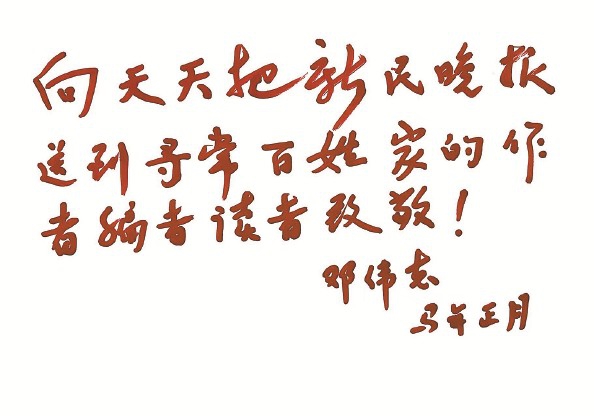 向天天把新民晚报
送到寻常百姓家的作
者编者读者致敬！
邓伟志
马年正月